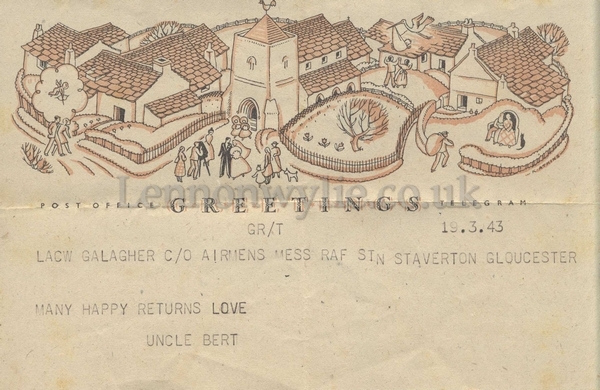 Lennonwylie.co.uk
POST OFFICE GREETINGS TELEGRAM
GR/T 19.3.43
LACW GALAGHER C/O AIRMENS MESS RAF STN STAVERTON GLOUCESTER
MANY HAPPY RETURNS LOVE
UNCLE BERT